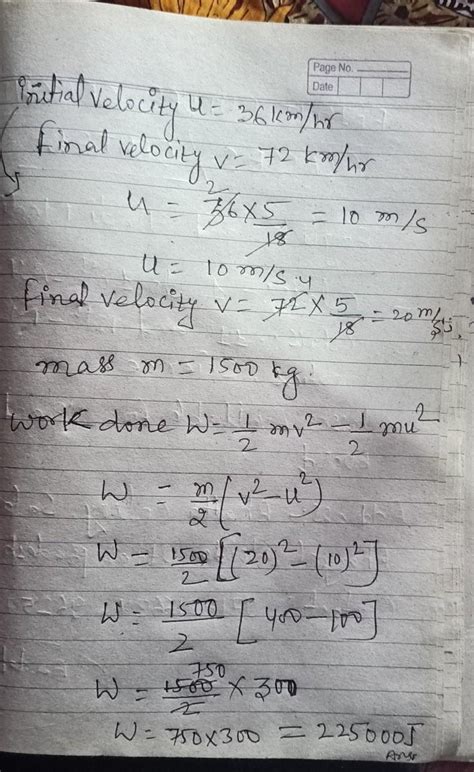 Page No.
Date
Initial velocity u = 36 km/hr
Final velocity v = 72 km/hr
u = 36 × 5/18 = 10 m/s
2
u = 10 m/s
4
Final velocity v = 72 × 5/18 = 20 m/s
mass m = 1500 kg.
work done W = 1/2 mv² - 1/2 mu²
W = m/2 (v² - u²)
W = 1500/2 [(20)² - (10)²]
W = 1500/2 [400 - 100]
750
W = 1500/2 × 300
W = 750 × 300 = 225000 J
Ans